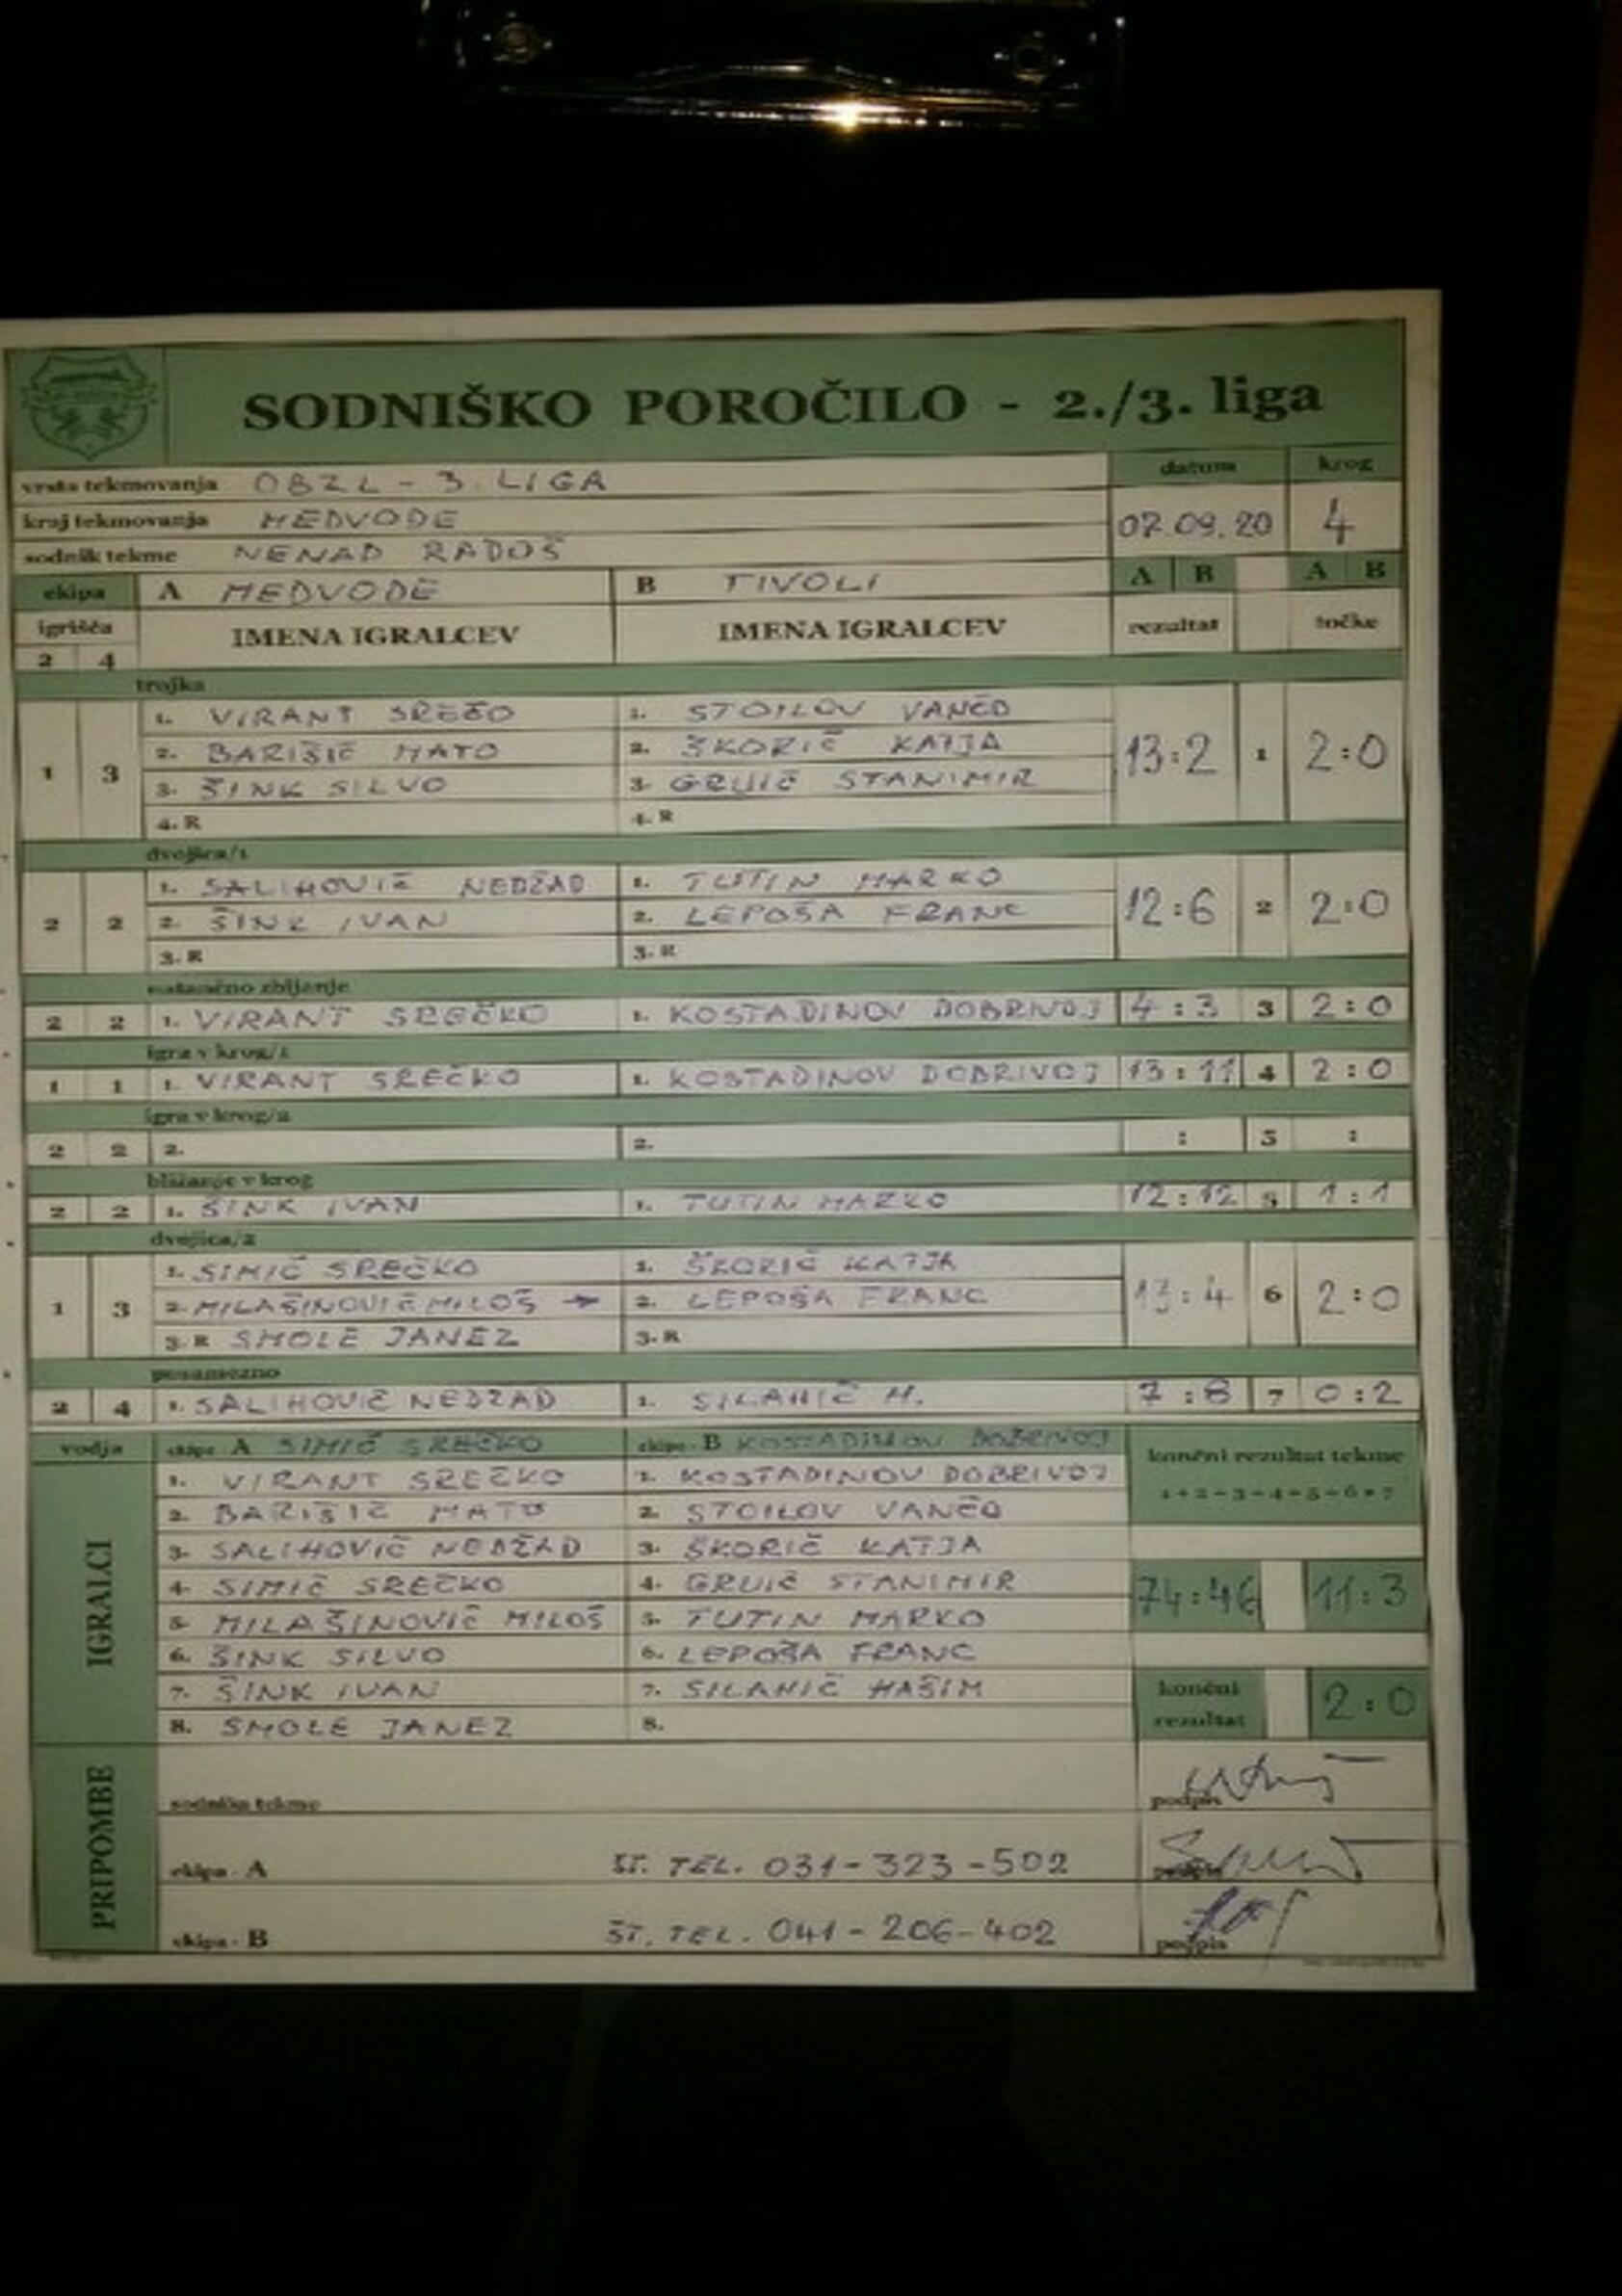 SODNIŠKO POROČILO - 2./3. liga
vrsta tekmovanja OBZL - 3. LIGA datum krog
kraj tekmovanja MEDVODE 07.09.20 4
sodnik tekme NENAD RADOŠ
ekipa A MEDVODE B TIVOLI A B A B
igrišča IMENA IGRALCEV IMENA IGRALCEV rezultat točke
2 4
trojka
1. VIRANT SREČO 1. STOILOV VANČO
1 3 2. BARIŠIČ MATO 2. ŠKORIČ KATJA 13:2 1 2:0
3. ŠINK SILVO 3. GRUIČ STANIMIR
4. R 4. R
dvojica/1
1. SALIHOVIČ NEDŽAD 1. TUTIN MARKO
2 2 2. ŠINK IVAN 2. LEPOŠA FRANC 12:6 2 2:0
3. R 3. R
natančno zbijanje
2 2 1. VIRANT SREČKO 1. KOSTADINOV DOBRIVOJ 4:3 3 2:0
igra v krog/1
1 1 1. VIRANT SREČKO 1. KOSTADINOV DOBRIVOJ 13:11 4 2:0
igra v krog/2
2 2 2. 2. : 5 :
bližanje v krog
2 2 1. ŠINK IVAN 1. TUTIN MARKO 12:12 5 1:1
dvojica/2
1. SIMIČ SREČKO 1. ŠKORIČ KATJA
1 3 2. MILAŠINOVIČ MILOŠ → 2. LEPOŠA FRANC 13:4 6 2:0
3. R SMOLE JANEZ 3. R
posamezno
2 4 1. SALIHOVIČ NEDŽAD 1. SILAHIČ H. 7:8 7 0:2
vodja ekipe A SIMIČ SREČKO ekipe - B KOSTADINOV DOBRIVOJ končni rezultat tekme
1+2+3+4+5+6+7
IGRALCI
1. VIRANT SREČKO 1. KOSTADINOV DOBRIVOJ
2. BARIŠIČ MATO 2. STOILOV VANČO
3. SALIHOVIČ NEDŽAD 3. ŠKORIČ KATJA
4. SIMIČ SREČKO 4. GRUIČ STANIMIR 74:46 11:3
5. MILAŠINOVIČ MILOŠ 5. TUTIN MARKO
6. ŠINK SILVO 6. LEPOŠA FRANC
7. ŠINK IVAN 7. SILAHIČ HAŠIM končni rezultat 2:0
8. SMOLE JANEZ 8.
PRIPOMBE
sodnika tekme podpis
ekipa - A ŠT. TEL. 031-323-502 podpis
ekipa - B ŠT. TEL. 041-206-402 podpis